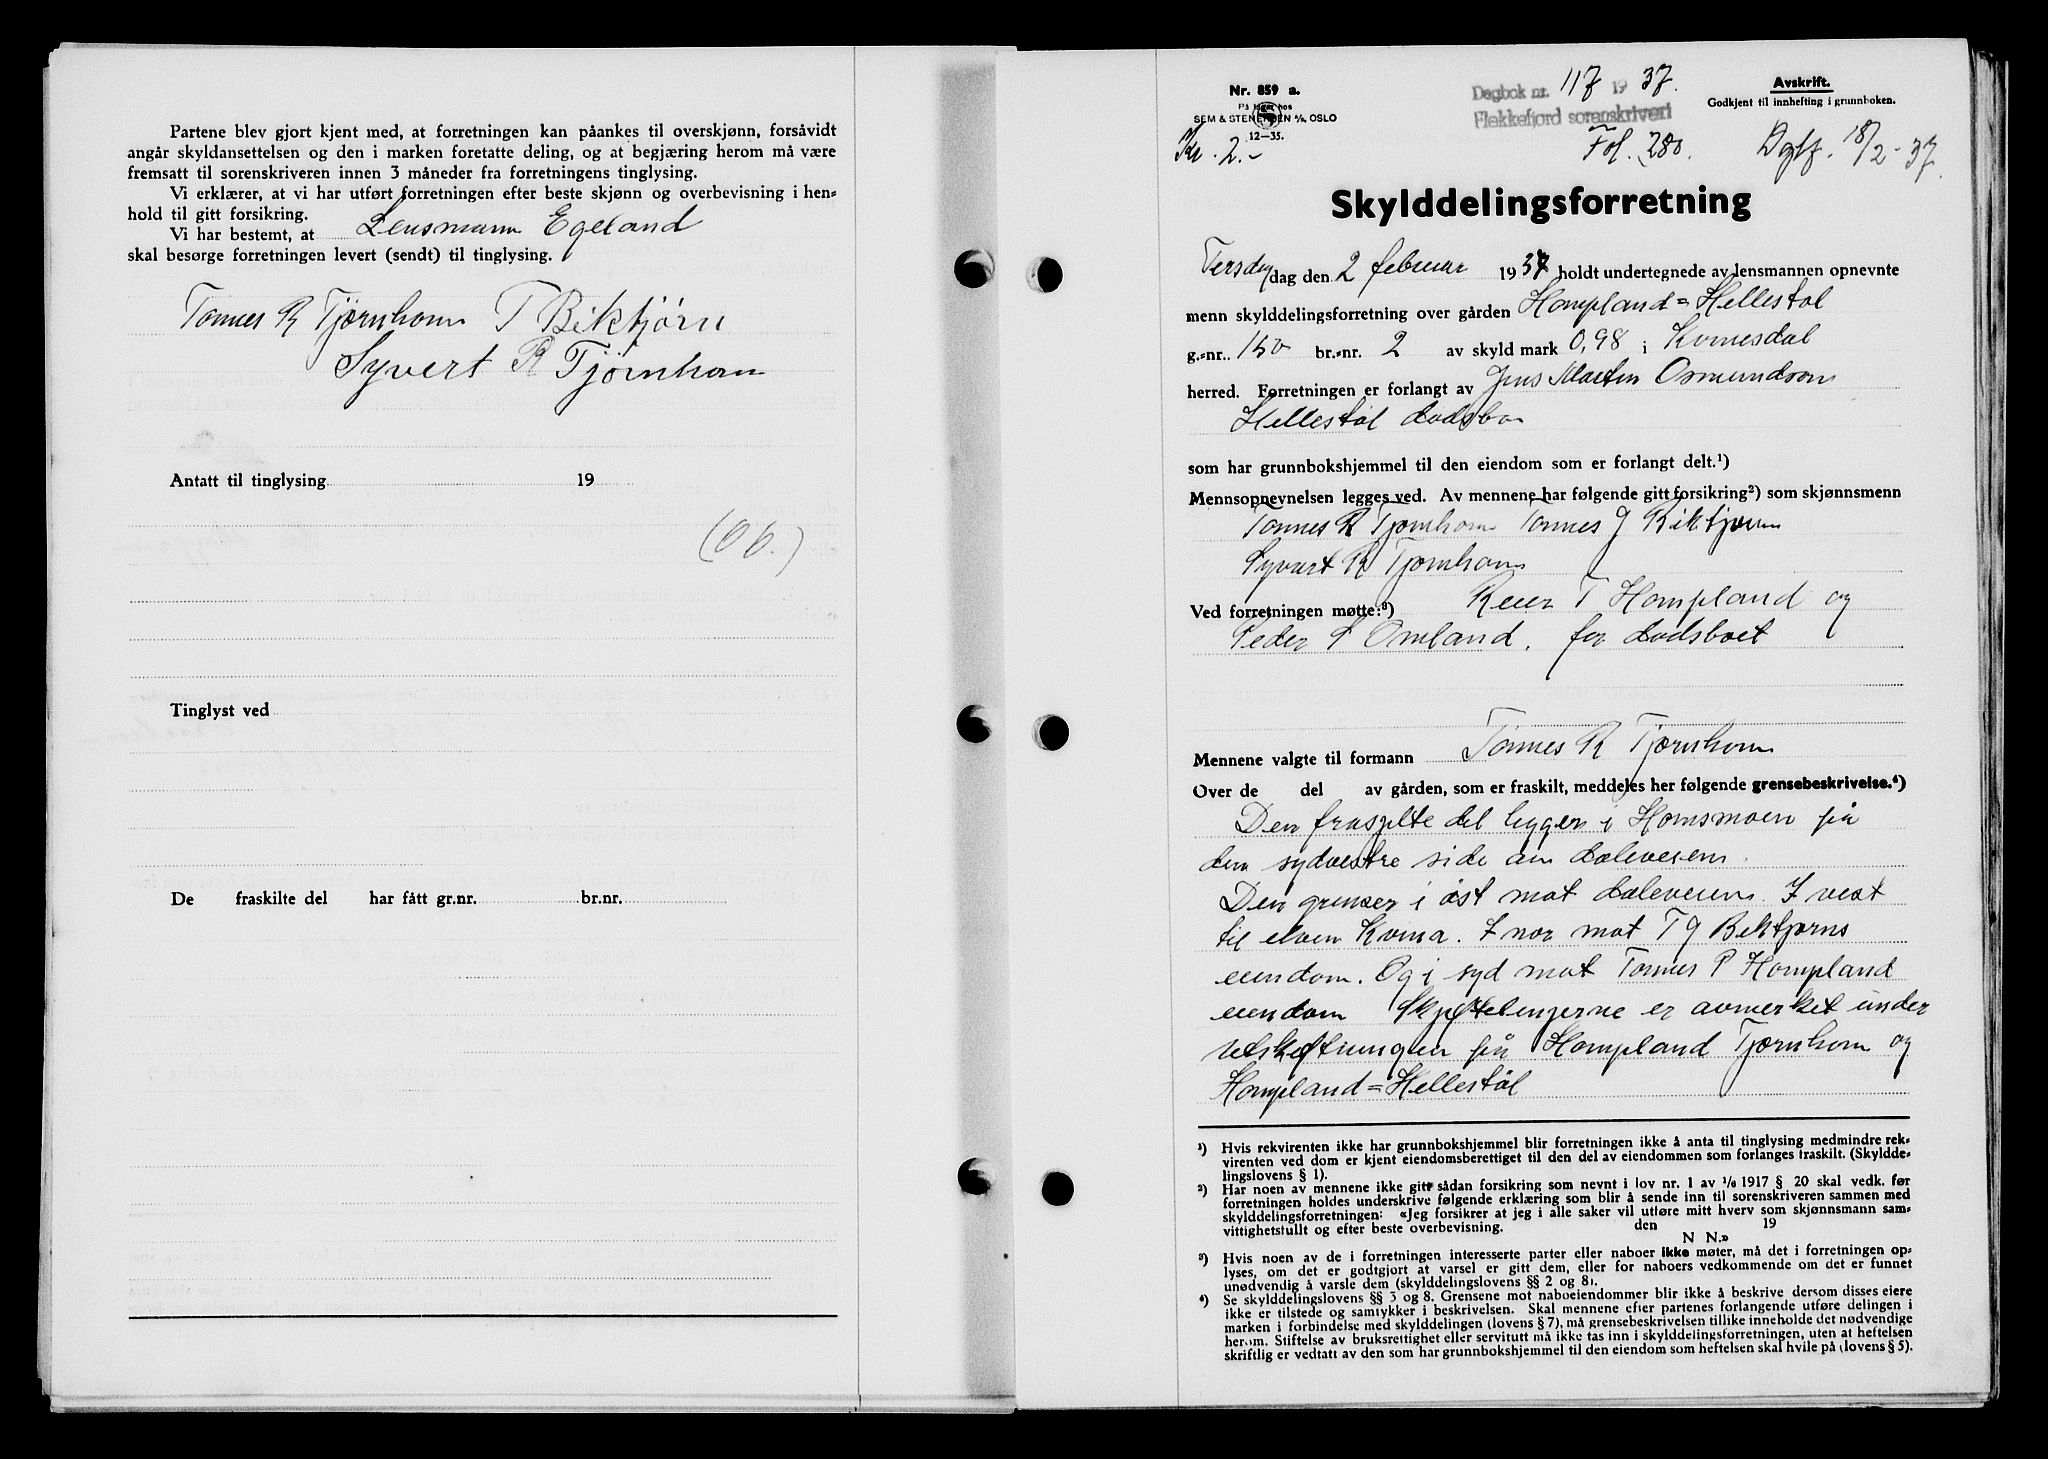 Partene blev gjort kjent med, at forretningen kan påankes til overskjønn, forsåvidt
angår skyldansettelsen og den i marken foretatte deling, og at begjæring herom må være
fremsatt til sorenskriveren innen 3 måneder fra forretningens tinglysing.
Vi erklærer, at vi har utført forretningen efter beste skjønn og overbevisning i hen=
hold til gitt forsikring.
Vi har bestemt, at Lensmann Egeland
skal besørge forretningen levert (sendt) til tinglysing.
Tønnes R Tjørnhom T Biktjørn
Syvert R Tjørnhom
Antatt til tinglysing 19
(Ob.)
Tinglyst ved
De fraskilte del har fått gr.nr. br.nr.
Nr. 859 a.
På lager hos
SEM & STENERSEN A/S, OSLO
12—35.
Kr. 2.-
Dagbok nr. 117 1937.
Flekkefjord sorenskriveri
Fol. 280.
Avskrift.
Godkjent til innhefting i grunnboken.
Dgbf. 18/2-37.
Skylddelingsforretning
Tirsdag dag den 2 februar 1937 holdt undertegnede av lensmannen opnevnte
menn skylddelingsforretning over gården Hompland=Hellestøl
g.-nr. 150 br.-nr. 2 av skyld mark 0,98 i Kvinesdal
herred. Forretningen er forlangt av Jens Martin Osmundson
Hellestøl dødsbo
som har grunnbokshjemmel til den eiendom som er forlangt delt.¹)
Mennsopnevnelsen legges ved. Av mennene har følgende gitt forsikring²) som skjønnsmenn
Tønnes R Tjørnhom Tønnes J Biktjørn
Syvert R Tjørnhom
Ved forretningen møtte:³) Reier T Hompland og
Peder S Omland. for dødsboet
Mennene valgte til formann Tønnes R Tjørnhom
Over de del av gården, som er fraskilt, meddeles her følgende grensebeskrivelse.⁴)
Den fraskilte del ligger i Homsmoen på
den sydvestre side av daleveien.
Den grenser i øst mot daleveien. I vest
til elven Kvina. I nor mot T J Biktjørns
eiendom. Og i syd mot Tønnes P Hompland
eiendom er avmerket under
utskiftningen på Hompland Tjørnhom og
Hompland=Hellestøl
¹) Hvis rekvirenten ikke har grunnbokshjemmel blir forretningen ikke å anta til tinglysing medmindre rek=
virenten ved dom er kjent eiendomsberettiget til den del av eiendommen som forlanges fraskilt. (Skyldde=
lingslovens § 1).
²) Har noen av mennene ikke gitt sådan forsikring som nevnt i lov nr. 1 av 1/6 1917 § 20 skal vedk. før
forretningen holdes underskrive følgende erklæring som blir å sende inn til sorenskriveren sammen med
skylddelingsforretningen: «Jeg forsikrer at jeg i alle saker vil utføre mitt hverv som skjønnsmann sam=
vittighetsfullt og efter beste overbevisning. den 19
N N.»
³) Hvis noen av de i forretningen interesserte parter eller naboer ikke møter, må det i forretningen op=
lyses, om det er godtgjort at varsel er gitt dem, eller for naboers vedkommende om det er funnet
unødvendig å varsle dem (skylddelingslovens §§ 2 og 8).
⁴) Se skylddelingslovens §§ 3 og 8. Grensene mot naboeiendommer blir ikke å beskrive dersom disses eiere
ikke er tilstede og samtykker i beskrivelsen. Skal mennene efter partenes forlangende utføre delingen i
marken i forbindelse med skylddelingen (lovens § 7), må grensebeskrivelsen tillike inneholde det nødvendige
herom. Stiftelse av bruksrettighet eller servitutt må ikke tas inn i skylddelingsforretningen, uten at heftelsen
skriftlig er vedtatt av den som har grunnbokshjemmel til den eiendom som heftelsen skal hvile på (lovens § 5).